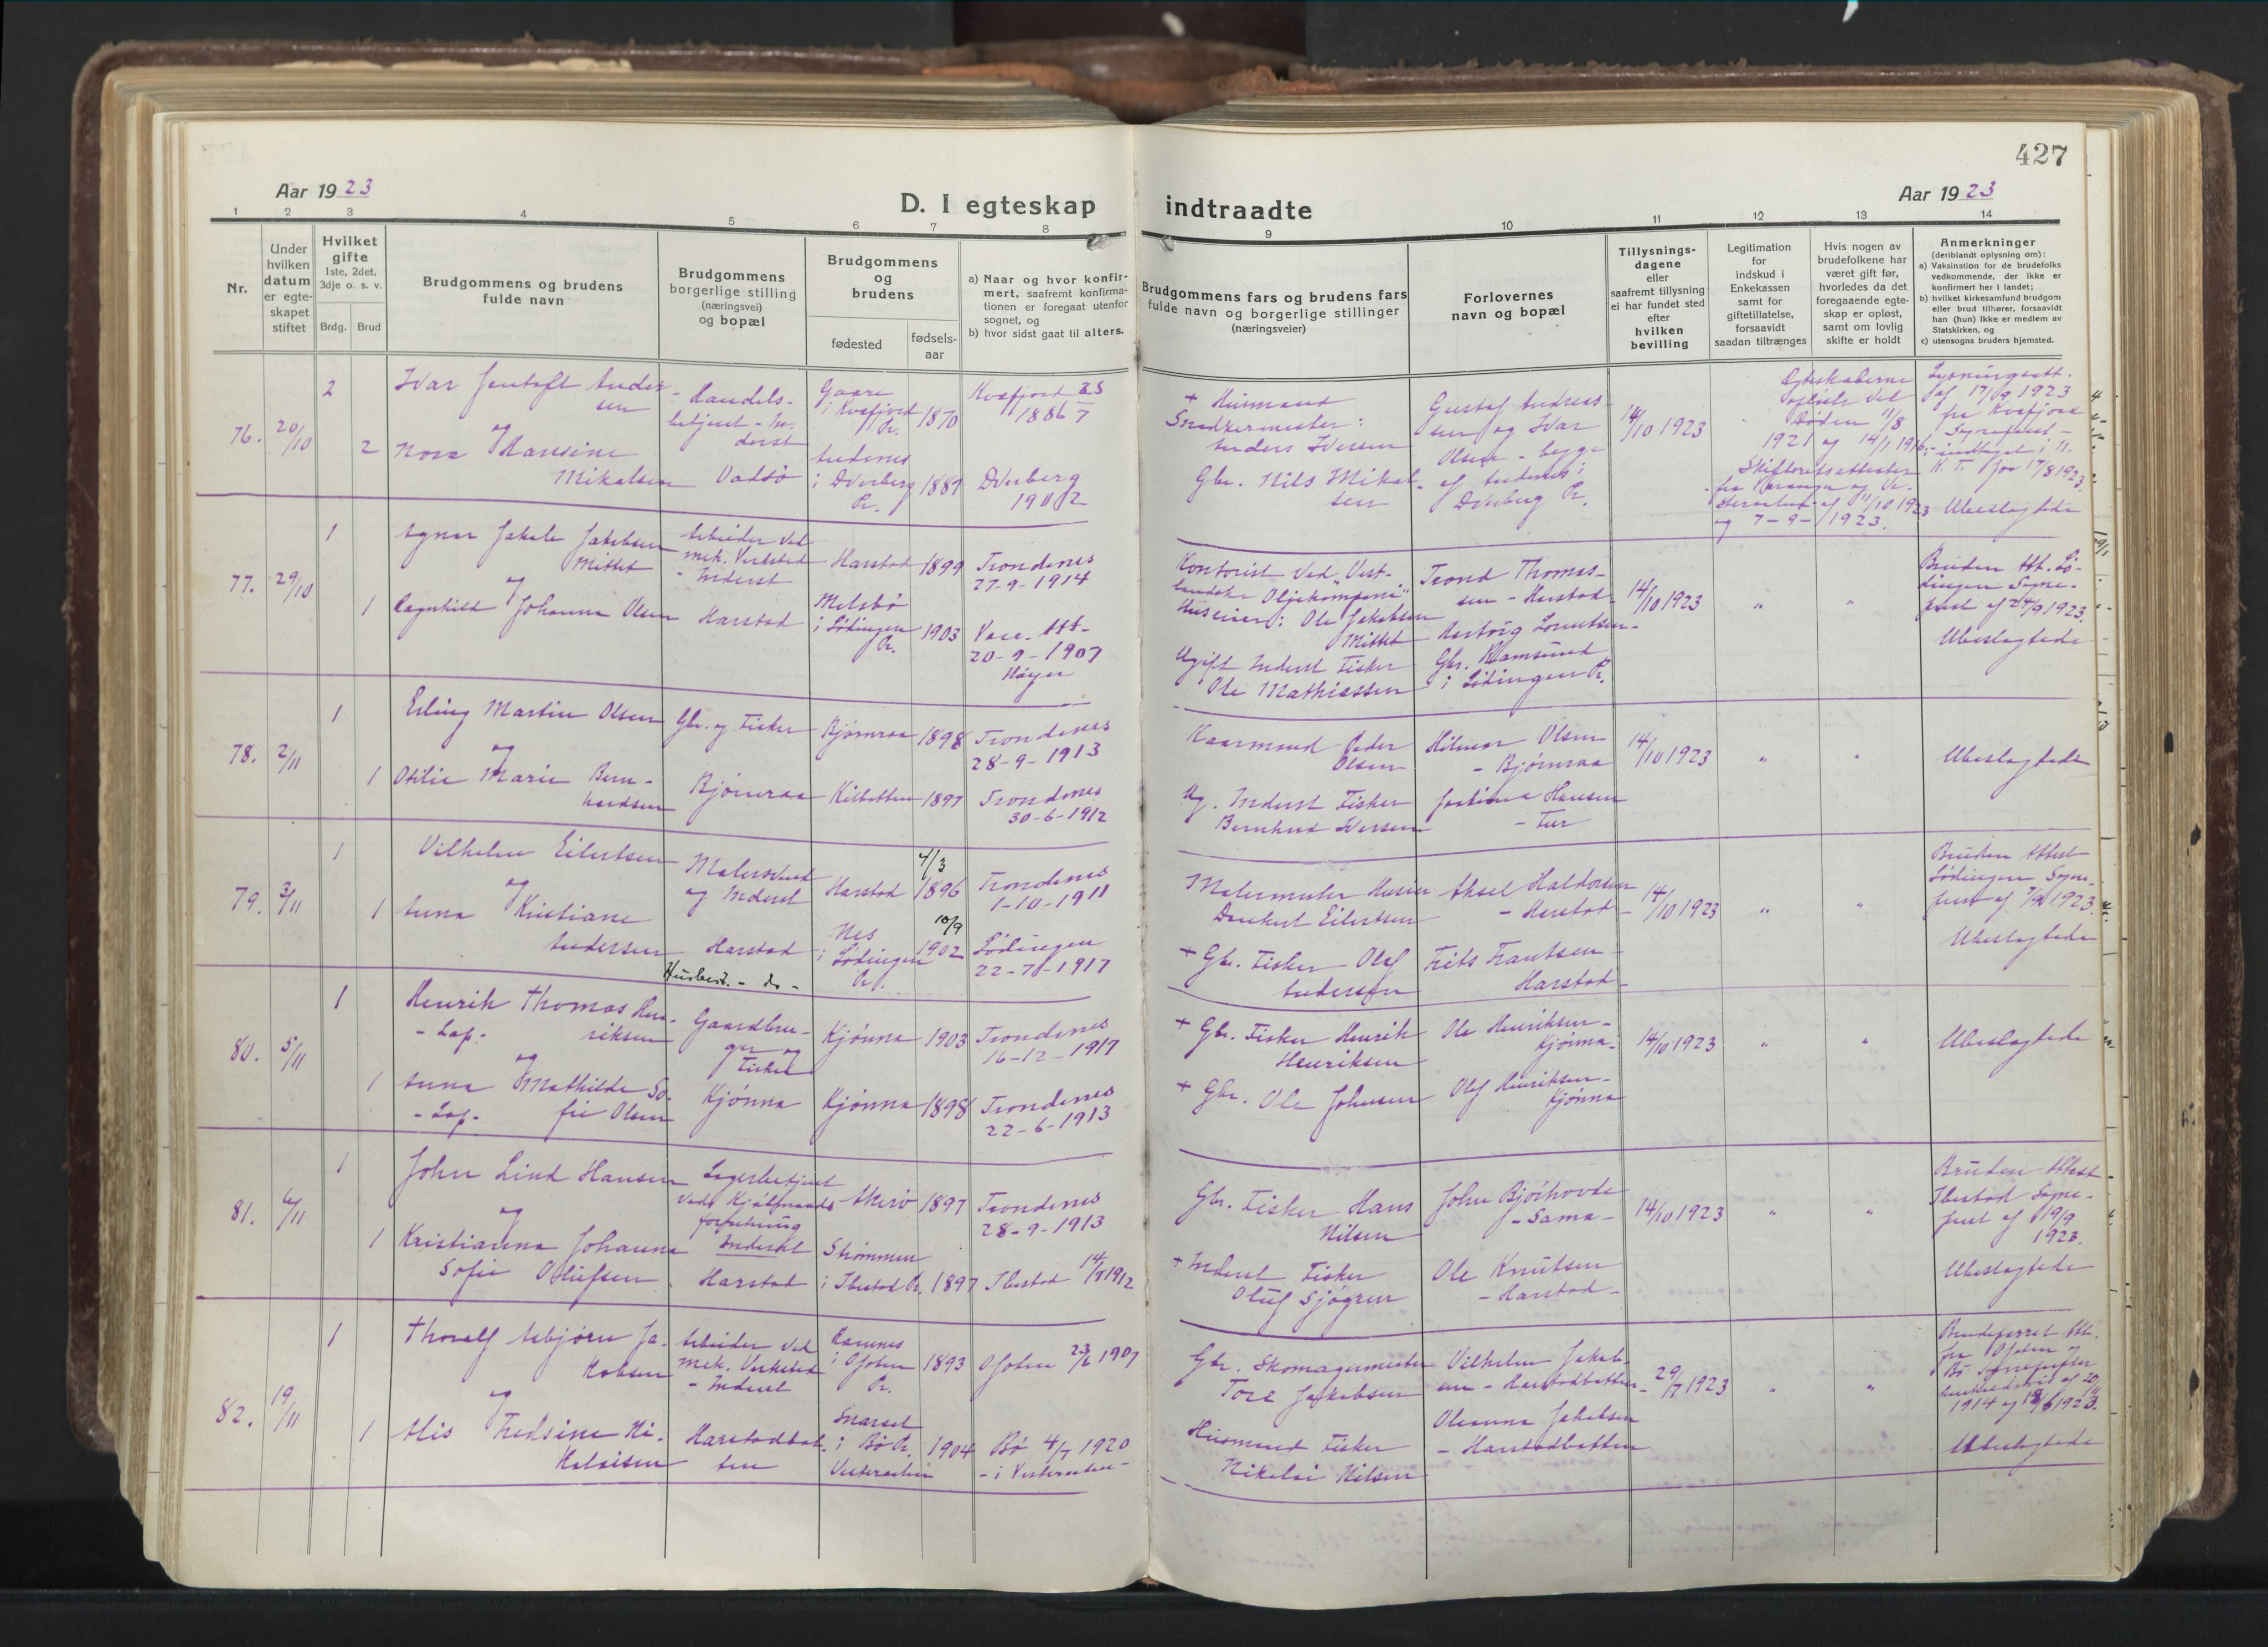 427
Aar 1923
Aar 1923
D. I egteskap indtraadte
1 2 3 4 5 6 7 8
9 10 11 12 13 14
Nr.
Under
hvilken
datum
er egte-
skapet
stiftet
Hvilket
gifte
1ste, 2det,
3dje o. s. v.
Brdg. Brud
Brudgommens og brudens
fulde navn
Brudgommens
borgerlige stilling
(næringsvei)
og bopæl
Brudgommens
og
brudens
fødested
fødsels-
aar
a) Naar og hvor konfir-
mert, saafremt konfirma-
tionen er foregaat utenfor
sognet, og
b) hvor sidst gaat til alters.
Brudgommens fars og brudens fars
fulde navn og borgerlige stillinger
(næringsveier)
Forlovernes
navn og bopæl
Tillysnings-
dagene
eller
saafremt tillysning
ei har fundet sted
efter
hvilken
bevilling
Legitimation
for
indskud i
Enkekassen
samt for
giftetillatelse,
forsaavidt
saadan tiltrænges
Hvis nogen av
brudefolkene har
været gift før,
hvorledes da det
foregaaende egte-
skap er opløst,
samt om lovlig
skifte er holdt
Anmerkninger
(deriblandt oplysning om):
a) Vaksination for de brudefolks
vedkommende, der ikke er
konfirmert her i landet;
b) hvilket kirkesamfund brudgom
eller brud tilhører, forsaavidt
han (hun) ikke er medlem av
Statskirken, og
c) utensogns bruders hjemsted.
76. 20/10
2
Ivar Jentoft Ander-
sen
og
2 Nora Hansine
Mikalsen
Handels-
betjent - In-
derst
Vadsø
Gaare
i Kvæfjord
Pr. 1870
Andenes
i Dverberg
Pr. 1881
Kvæfjord 25/7
1886
Dverberg
1902
+ Husmand
Snedkermester:
Anders Iversen
Gbr. Nils Mikal-
sen
Gustaf Andreas-
sen og Ivar
Olsen - begge
af Andenes i
Dverberg Pr.
14/10 1923
Egteskaberne
opløste ved
Døden 11/8
1921 og 14/1 1916
Skifteretsattester
fra Varanger og Ve-
steraalen af 11/10 1923
og 7-9-1923.
Lysningsatt.
af 17/9 1923
fra Kvæfjord
Sogneprest -
indtaget i N.
K. T. for 17/8 1923.
Ubeslegtede
77. 29/10
1
Agnar Jakob Jakobsen
Mittet
og
1 Ragnhild Johanna Olsen
Arbeider ved
mek. Verksted
- Inderst
Harstad
Harstad 1899
Melsbø
i Lødingen
Pr. 1903
Trondenes
27-9-1914
Vacc. Att.
20-9-1907
Høyer
Kontorist ved „Vest-
landske Oljekompani”
Huseier: Ole Jakobsen
Mittet
Ugift Inderst Fisker
Ole Mathiassen
Trond Thomas-
sen - Harstad
Hartvig Lorentsen -
Gbr. Ramsund
i Lødingen Pr.
14/10 1923
„ „
Bruden Att. Lø-
dingen Sogne-
prest af 24/9 1923.
Ubeslegtede
78. 2/11
1
Erling Martin Olsen
og
1 Otilie Marie Bern-
hardsen
Gbr. og Fisker
Bjørnraa
Bjørnraa 1898
Kilbotten 1897
Trondenes
28-9-1913
Trondenes
30-6-1912
Kaarmand Peder
Olsen
Ug. Inderst Fisker
Bernhard Iversen
Hilmar Olsen
- Bjørnraa
Hansen
14/10 1923
„ „
Ubeslegtede
79. 3/11
1
Vilhelm Eilertsen
og
1 Anna Kristiane
Andersen
Malersvend
og Inderst
Harstad
Husbest. - do -
Harstad 4/3 1896
Nes
i Lødingen
Pr. 10/9 1902
Trondenes
1-10-1911
Lødingen
22-7-1917
Malermester Husier
Eilertsen
+ Gbr. Fisker Olaf
Andersen
Aksel Haldorsen
- Harstad -
Frits Frantsen
Harstad -
14/10 1923
„ „
Bruden Attest
Lødingen Sogne-
prest af 7/9 1923.
Ubeslegtede
80. 5/11
1
Henrik Thomas Hen-
- Lap. - riksen
og
1 Anna Mathilde So-
- Lap. - fie Olsen
Gaardbru-
ger og
Fisker
Kjønna
Kjønna 1903
Kjønna 1898
Trondenes
16-12-1917
Trondenes
22-6-1913
+ Gbr. Fisker Henrik
Henriksen
+ Gbr. Ole Johnsen
Ole Henriksen -
Kjønna -
Olaf Henriksen -
Kjønna
14/10 1923
„ „
Ubeslegtede
81. 6/11
1
John Lind Hansen
og
1 Kristianna Johanna
Sofie Olufsen
Lagerbetjent
ved Kjøbmands-
forretning
Inderst
Harstad
Akerø 1897
Strømmen
i Ibestad Pr. 1897
Trondenes
28-9-1913
Ibestad 14/7 1912
Gbr. Fisker Hans
Nilsen
+ Inderst Fisker
Oluf Sjøgren
John Bjørhovde
- Sama -
Ole Knutsen
- Harstad -
14/10 1923
„ „
Bruden Attest
Ibestad Sogne-
prest af 19/9
1923.
Ubeslegtede
82. 19/11
1
Thoralf Asbjørn Ja-
kobsen
og
1 Alis Fredsine Ni-
kolaisen
Arbeider ved
mek. Verksted
- Inderst
Harstadbot-
ten
Ramnes
i Ofoten
Pr. 1893
Snarset
i Bø Pr.
Vesteraalen 1904
Ofoten 23/6 1907
Bø 4/7 1920
- i Vesteraalen -
Gbr. Skomagermester
Tore Jakobsen
Husmand Fisker
Nikolai Nilsen
Vilhelm Jakob-
sen - Harstadbotten -
Oleanna Jakobsen
- Harstadbotten
29/7 1923
„ „
Brudeparret Att.
fra Ofoten og
Bø Sogneprester
henholdsvis af 20/11
1914 og 18/6 1923.
Ubeslegtede